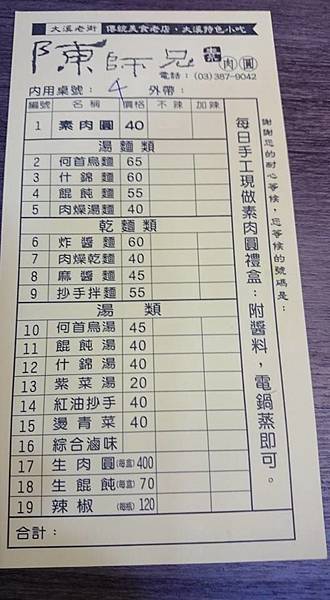 大溪老街 傳統美食老店,大溪特色小吃
陳師兄 素肉圓
電話:(03)387-9042
內用桌號: 4 外帶:
編號 名稱 價格 不辣 加辣
1 素肉圓 40
湯麵類
2 何首烏麵 65
3 什錦麵 60
4 餛飩麵 55
5 肉燥湯麵 40
乾麵類
6 炸醬麵 60
7 肉燥乾麵 40
8 麻醬麵 45
9 抄手拌麵 55
湯類
10 何首烏湯 45
11 餛飩湯 40
12 什錦湯 40
13 紫菜湯 20
14 紅油抄手 40
15 燙青菜 40
16 綜合滷味
17 生肉圓(每盒)400
18 生餛飩(每盒)70
19 辣椒(每瓶)120
合計:
每日手工現做素肉圓禮盒:附醬料,電鍋蒸即可。
謝謝您的耐心等候,您等候的號碼是: